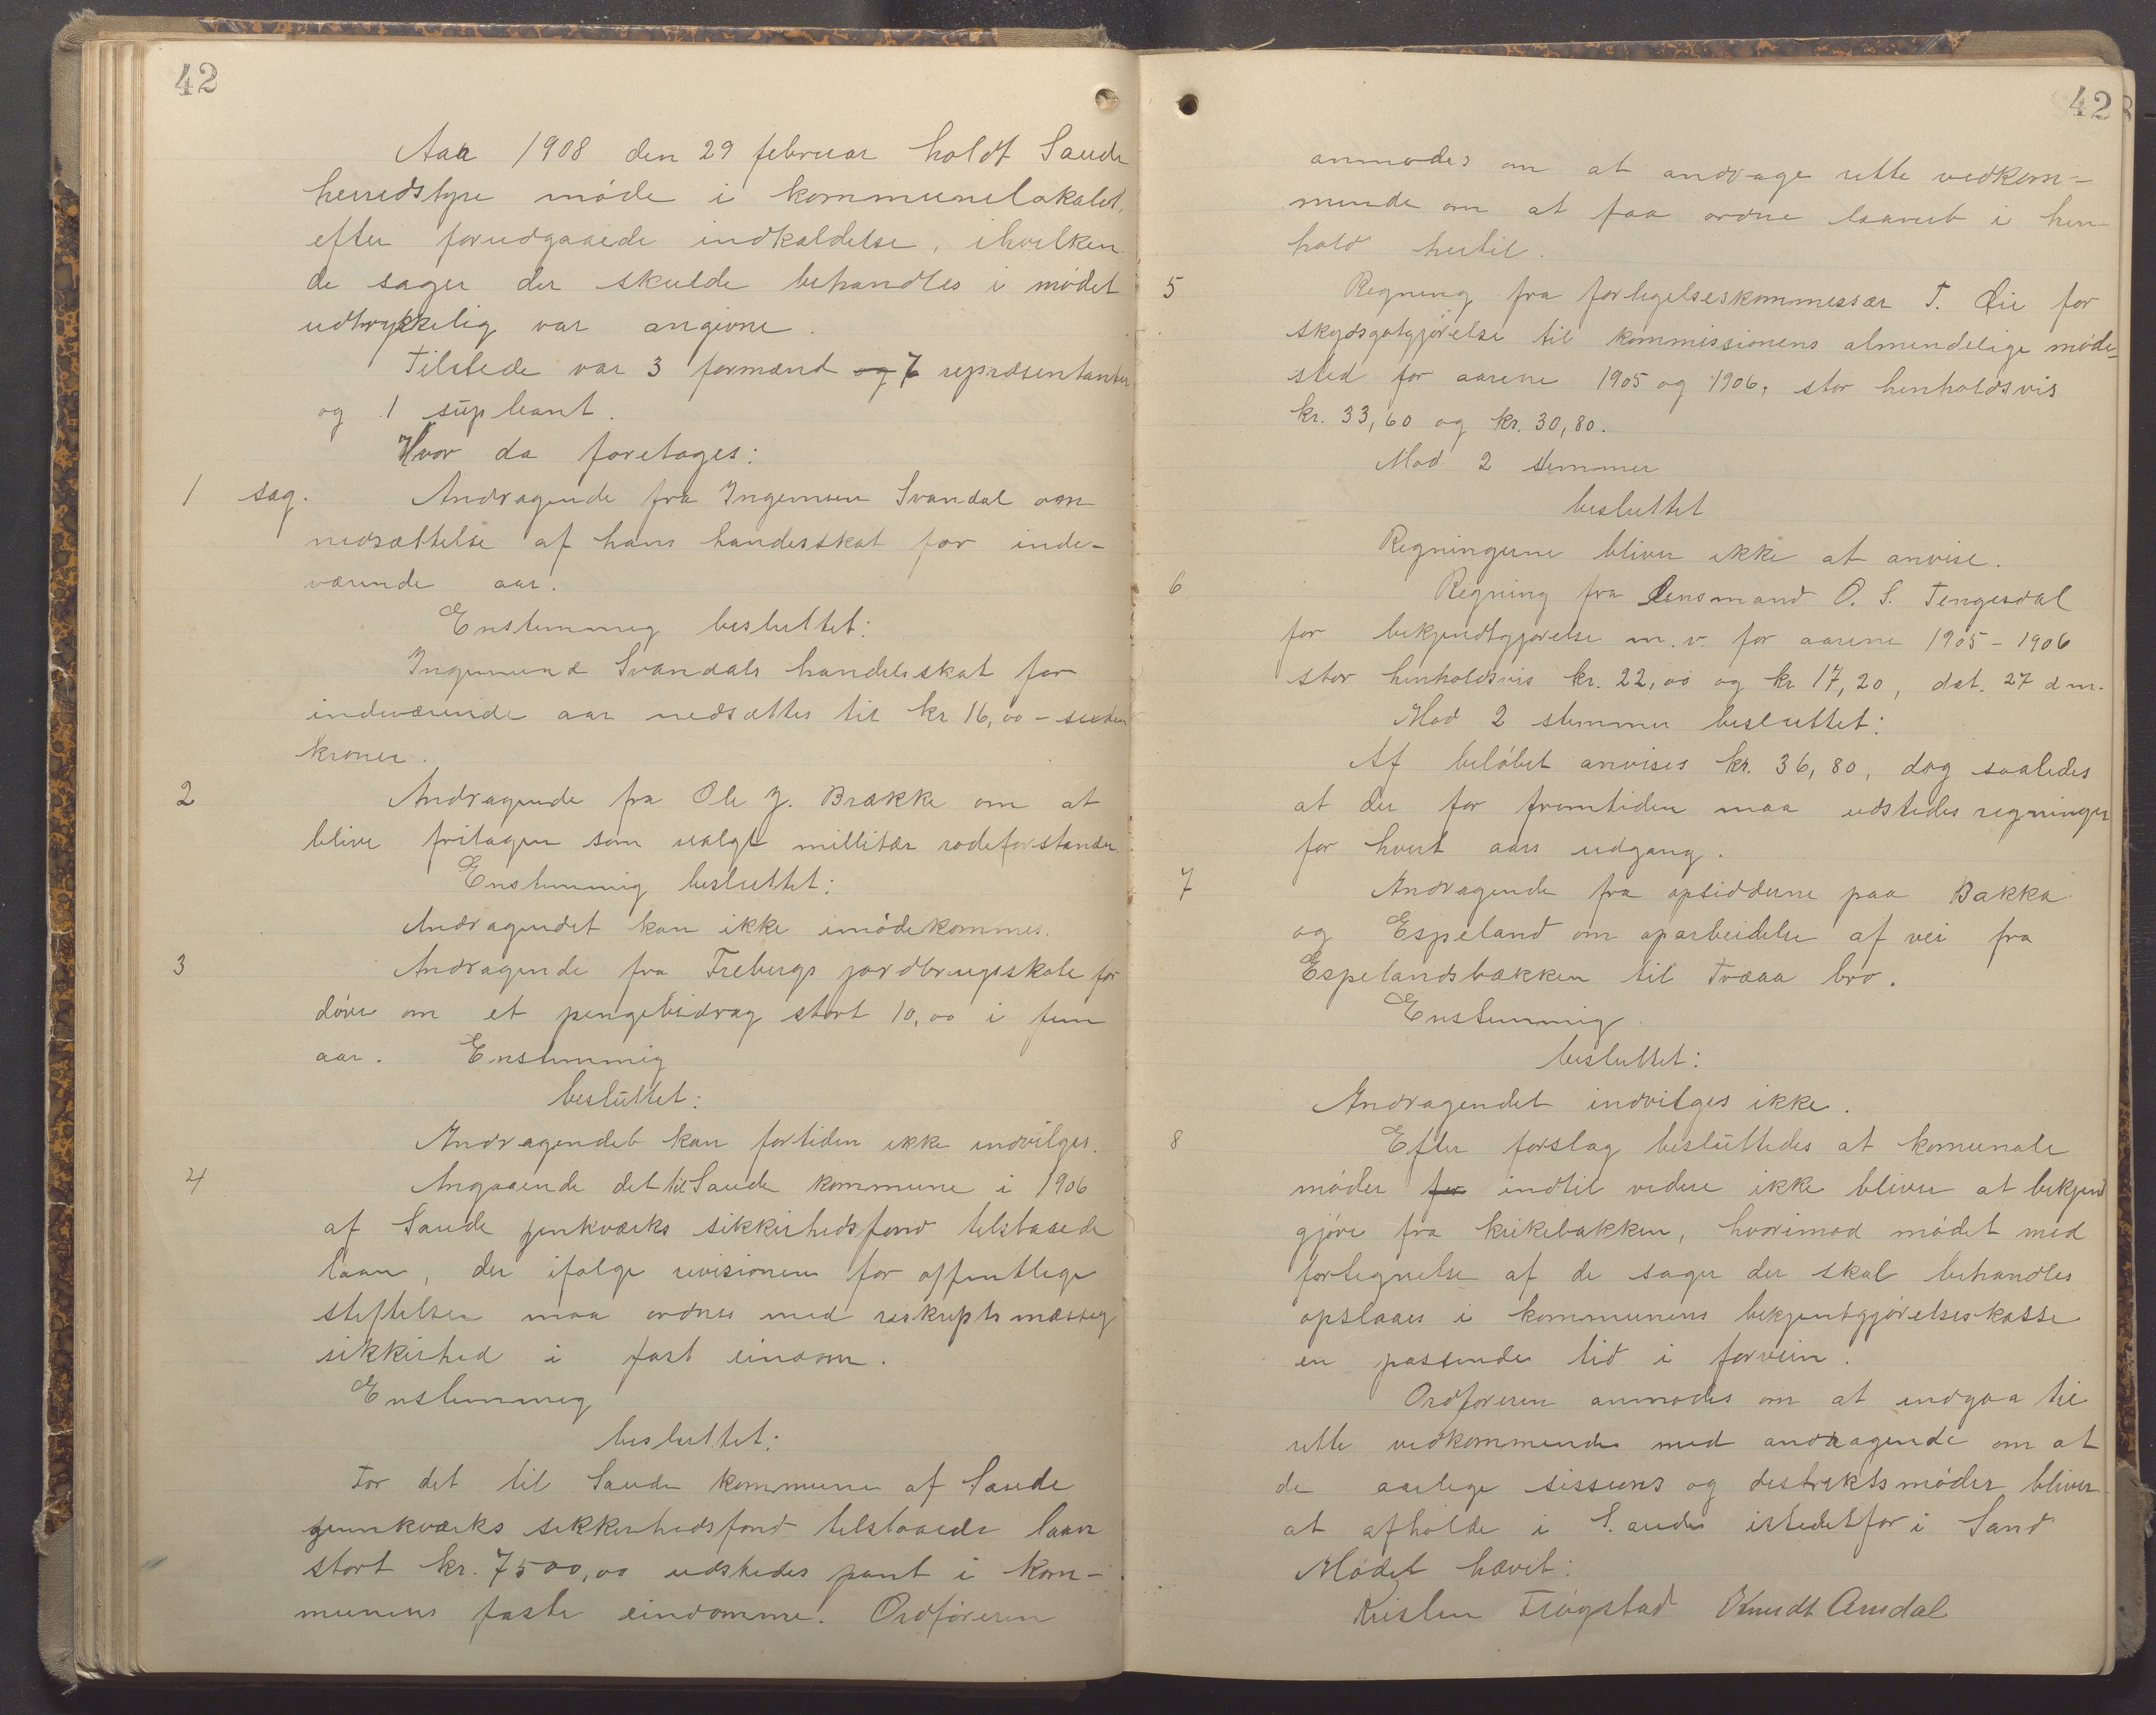 42
Aar 1908 den 29 februar holdt Saude
herredstyre møde i kommunelokalet,
efter forudgaaede indkaldelse, ihvilken
de sager der skulde behandles i mødet
udtrykkelig var angivne.
Tilstede var 3 formænd og 7 repræsentanter
og 1 supleant.
Hvor da foretages:
1 sag. Andragende fra Ingemun Svandal om
nedsættelse af hans handesskat for inde-
værende aar.
Enstemmig besluttet:
Ingemund Svandals handelsskat for
indeværende aar nedsættes til kr 16,00 - sexten
kroner.
2 Andragende fra Ole J. Brække om at
blive fritagen som valgt millitær rodeforstander.
Enstemmig besluttet:
Andragendet kan ikke imødekommes.
3 Andragende fra Trebergs jordbrugsskole for
døve om et pengebidrag stort 10,00 i fem
aar. Enstemmig
besluttet:
Andragendet kan fortiden ikke indvilges.
4 Angaaende det til Saude kommune i 1906
af Saude zinkværks sikkirhedsfond tilstaaede
laan, der ifølge revisionen for offentlege
steftelser maa ordnes med reskripts mæsseg
sikkirhed i fast eindom.
Enstemmeg
besluttet:
For det til Saude kommune af Saude
zinnkværks sekkerhedsfond tilstaaede laan
stort kr. 7500,00 udstedes pant i kom-
munens faste eindomme. Ordføreren
42
anmodes om at andrage rette vedkom-
mende om at faa ordne laanet i hen-
hold hertil.
5 Regning fra forlegelseskommessær T. Lie for
skydsgotgjørelse til kommissionens almendelige møde-
sted for aarene 1905 og 1906, stor henholdsvis
kr. 33,60 og kr. 30,80.
Mod 2 stemmer
besluttet
Regningerne bliver ikke at anvise.
6 Regning fra Lensmand O. S. Tengesdal
for bekjendtgjørelse m.v. for aarene 1905 - 1906
stor henholdsvis kr. 22,00 og kr 17,20, dat. 27 dm.
Mod 2 stemmer besluttet:
Af beløbet anvises kr. 36,80, dog saaledes
at der for fremtiden maa udstedes regninger
for hvert aars udgang.
7 Andragende fra opsidderne paa Bakka
og Espeland om oparbeidelse af vei fra
Espelandsbækken til Tvæaa bro.
Enstemmig
besluttet:
Andragendet indvilges ikke.
8 Efter forslag besluttedes at komunale
møder for indtil vedere ikke bliver at bekjend
gjøre fra kirkebakken, hvorimod mødet med
fortegnelse af de sager der skal behandles
opslaaes i kommunens bekjentgjørelseskasse
en passende tid i forvein.
Ordføreren anmodes om at indgaa til
rette vedkommende med andragende om at
de aarlege sessions og destriktsmøder bliver
at afholde i Saude istedetfor i Sand
Mødet hævet:
Kristen Frøgstad Knudt Amdal